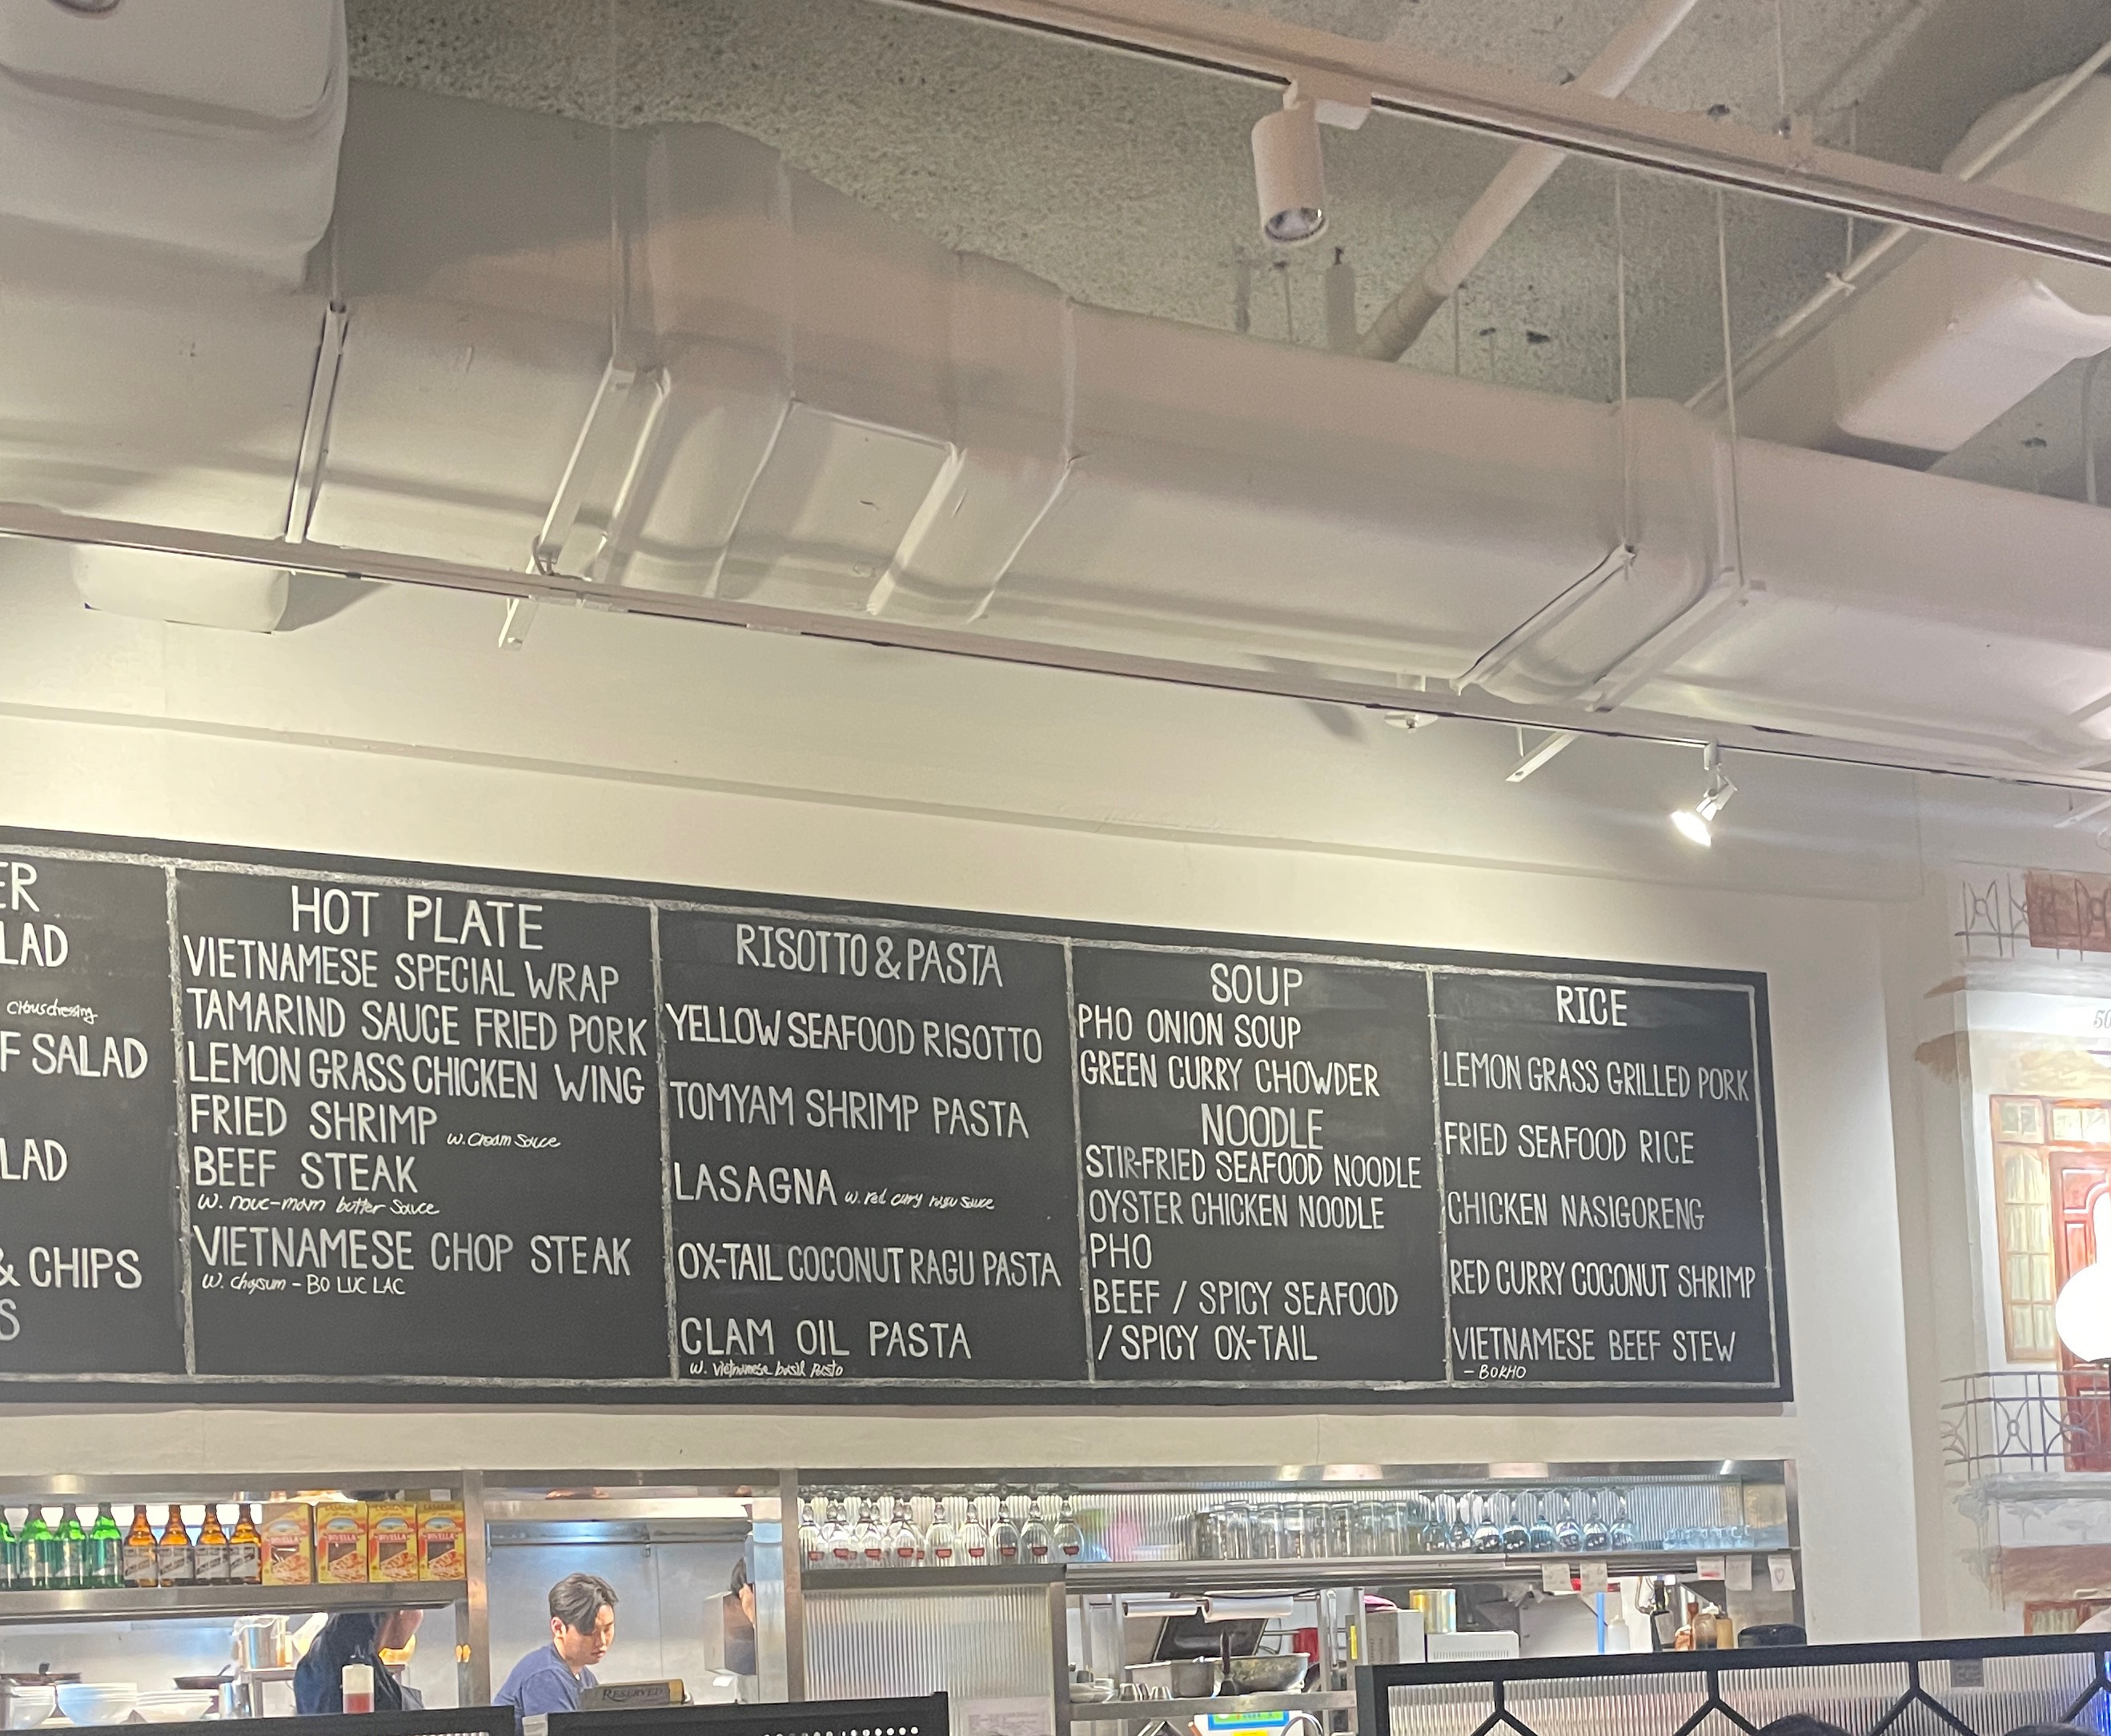 ER
LAD
citrus dressing
F SALAD
LAD
& CHIPS
S
HOT PLATE
VIETNAMESE SPECIAL WRAP
TAMARIND SAUCE FRIED PORK
LEMON GRASS CHICKEN WING
FRIED SHRIMP w. cream sauce
BEEF STEAK
w. nouc-mam butter sauce
VIETNAMESE CHOP STEAK
w. choysum - BO LUC LAC
RISOTTO & PASTA
YELLOW SEAFOOD RISOTTO
TOMYAM SHRIMP PASTA
LASAGNA w. red curry ragu sauce
OX-TAIL COCONUT RAGU PASTA
CLAM OIL PASTA
w. vietnamese basil pesto
SOUP
PHO ONION SOUP
GREEN CURRY CHOWDER
NOODLE
STIR-FRIED SEAFOOD NOODLE
OYSTER CHICKEN NOODLE
PHO
BEEF / SPICY SEAFOOD
/ SPICY OX-TAIL
RICE
LEMON GRASS GRILLED PORK
FRIED SEAFOOD RICE
CHICKEN NASIGORENG
RED CURRY COCONUT SHRIMP
VIETNAMESE BEEF STEW
- BOKHO
50
RESERVED